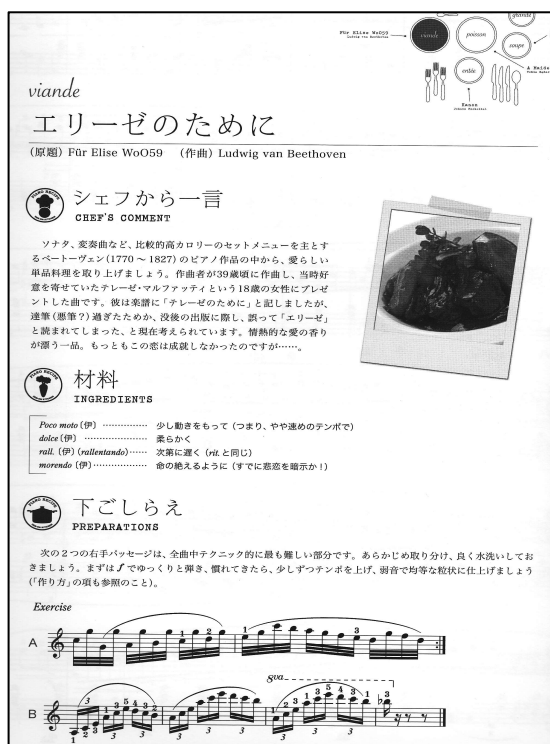 Für Elise WoO59
Ludwig van Beethoven
viande
poisson
grande
soupe
entée
Kanon
viande
エリーゼのために
(原題) Für Elise WoO59 (作曲) Ludwig van Beethoven
PIANO RECIPE
シェフから一言
CHEF'S COMMENT
ソナタ、変奏曲など、比較的高カロリーのセットメニューを主とす
るベートーヴェン(1770～1827)のピアノ作品の中から、愛らしい
単品料理を取り上げましょう。作曲者が39歳頃に作曲し、当時好
意を寄せていたテレーゼ・マルファッティという18歳の女性にプレゼ
ントした曲です。彼は楽譜に「テレーゼのために」と記しましたが、
達筆(悪筆?)過ぎたためか、没後の出版に際し、誤って「エリーゼ」
と読まれてしまった、と現在考えられています。情熱的な愛の香り
が漂う一品。もっともこの恋は成就しなかったのですが……。
PIANO RECIPE
材料
INGREDIENTS
Poco moto (伊) …………… 少し動きをもって (つまり、やや速めのテンポで)
dolce (伊) ………………… 柔らかく
rall. (伊) (rallentando) …… 次第に遅く (rit. と同じ)
morendo (伊) ……………… 命の絶えるように (すでに悲恋を暗示か!)
PIANO RECIPE
下ごしらえ
PREPARATIONS
次の2つの右手パッセージは、全曲中テクニック的に最も難しい部分です。あらかじめ取り分け、良く水洗いしてお
きましょう。まずは f でゆっくりと弾き、慣れてきたら、少しずつテンポを上げ、弱音で均等な粒状に仕上げましょう
(「作り方」の項も参照のこと)。
Exercise
A
1 2 1 3
8va
B
1 2 3 1 3 5 4 3 2 1 2 3 1 3 5 4 3 1 3
3 3 3 3 3 3